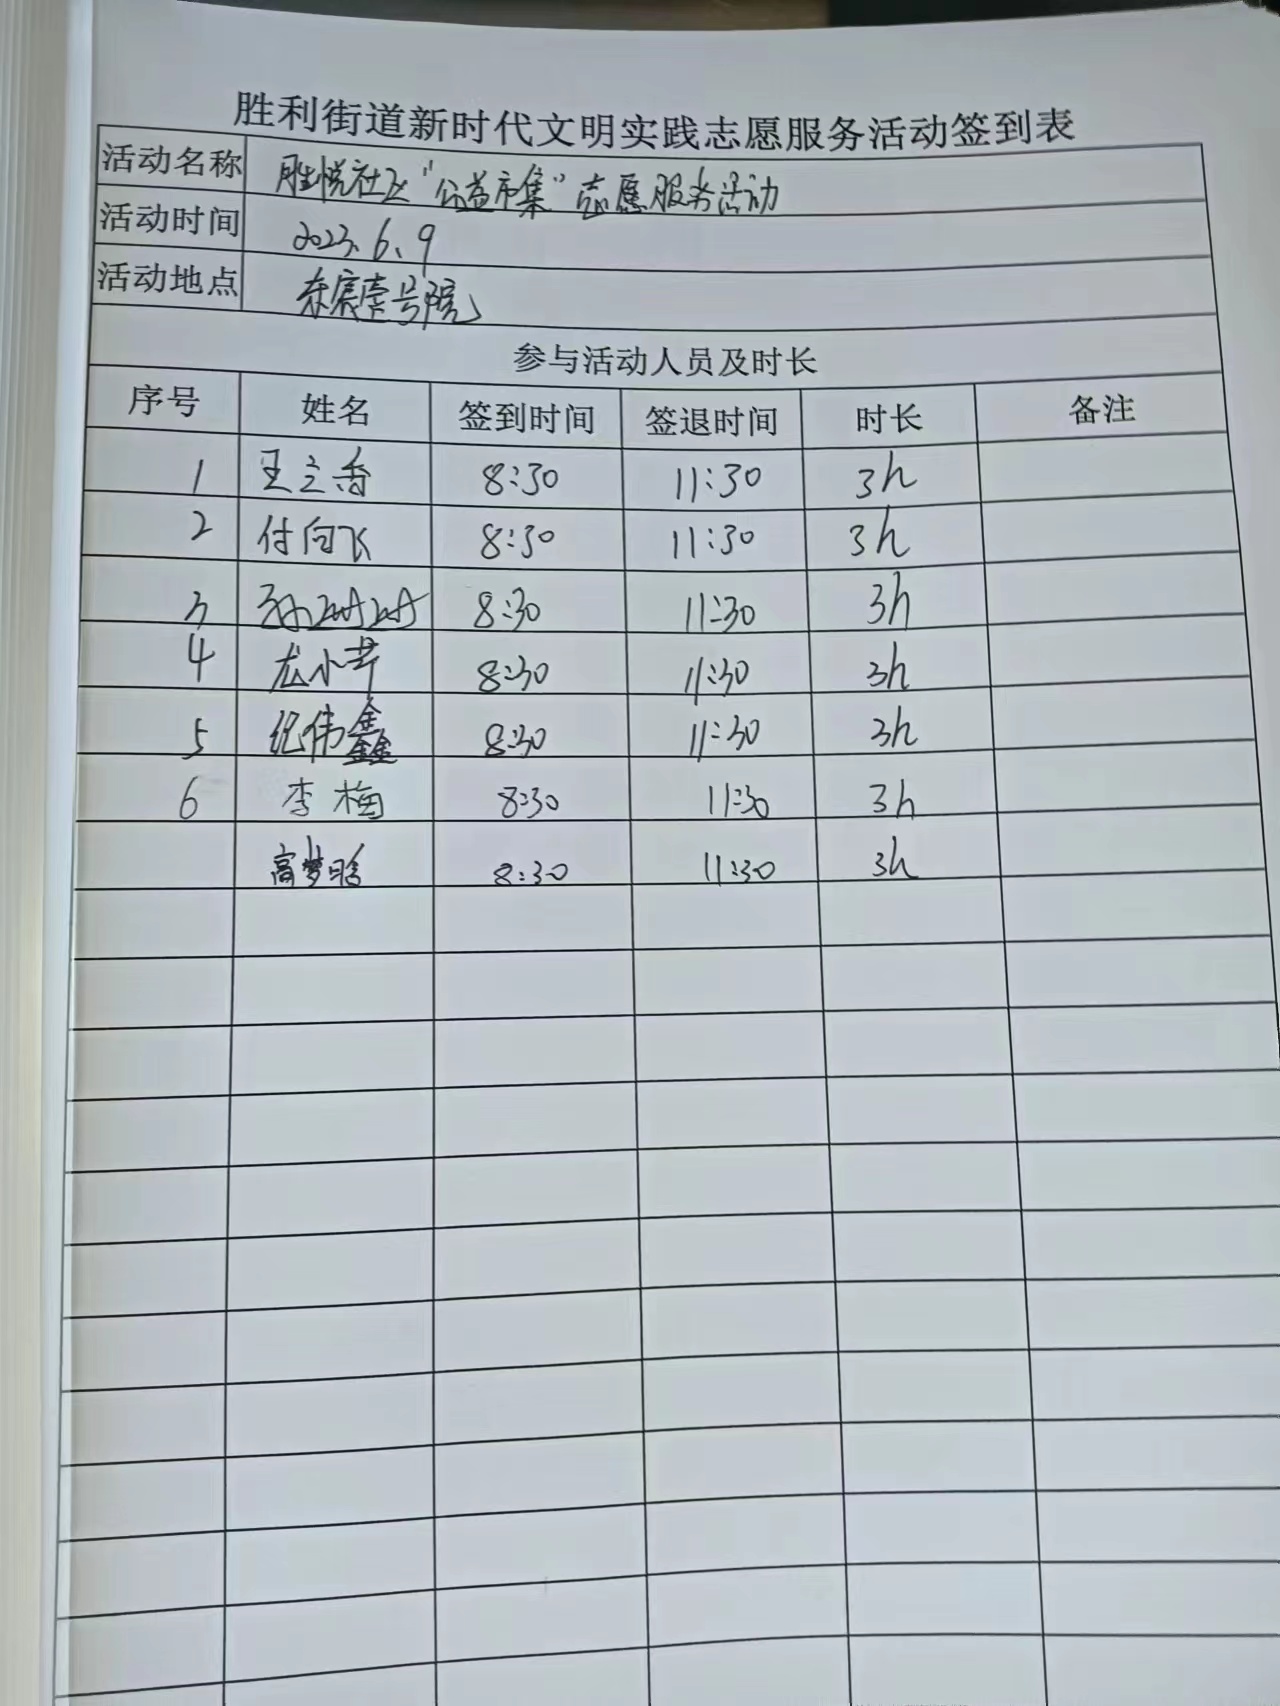 胜利街道新时代文明实践志愿服务活动签到表
活动名称 胜悦社区“公益市集”志愿服务活动
活动时间 2023.6.9
活动地点 东宸壹号院
参与活动人员及时长
序号 姓名 签到时间 签退时间 时长 备注
1 王立香 8:30 11:30 3h
2 付向飞 8:30 11:30 3h
3 8:30 11:30 3h
4 龙小芹 8:30 11:30 3h
5 纪伟鑫 8:30 11:30 3h
6 李梅 8:30 11:30 3h
高梦晗 8:30 11:30 3h